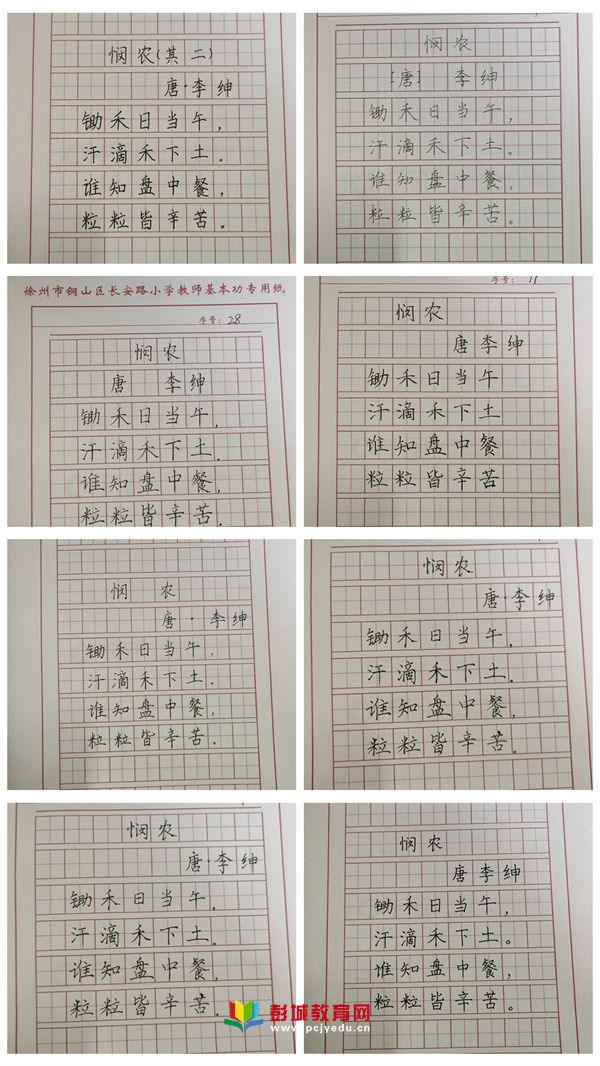 悯农(其二)
唐·李绅
锄禾日当午,
汗滴禾下土。
谁知盘中餐,
粒粒皆辛苦。
悯农
[唐] 李绅
锄禾日当午,
汗滴禾下土。
谁知盘中餐,
粒粒皆辛苦。
徐州市铜山区长安路小学教师基本功专用纸
序号: 28
悯农
唐 李绅
锄禾日当午,
汗滴禾下土.
谁知盘中餐,
粒粒皆辛苦.
序号: 11
悯农
唐李绅
锄禾日当午
汗滴禾下土
谁知盘中餐
粒粒皆辛苦
悯 农
唐 · 李绅
锄禾日当午,
汗滴禾下土.
谁知盘中餐,
粒粒皆辛苦.
悯农
唐·李绅
锄禾日当午.
汗滴禾下土.
谁知盘中餐,
粒粒皆辛苦.
悯农
唐·李绅
锄禾日当午.
汗滴禾下土.
谁知盘中餐,
粒粒皆辛苦.
悯农
唐李绅
锄禾日当午,
汗滴禾下土。
谁知盘中餐,
粒粒皆辛苦。
彭城教育网
www.pcjyedu.cn